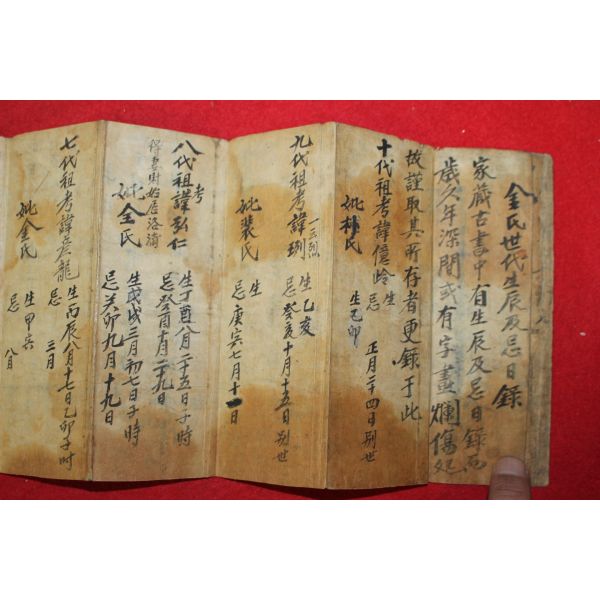 金氏世代生辰及忌日錄
家藏古書中有生辰及忌日錄而
歲久年深間或有字畫爛傷處
故謹取其所存者更錄于此
十代祖考諱億岭
生
忌 正月二十四日別世
妣 氏
生己卯
九代祖考諱琍
一云烈
生乙亥
忌癸亥十月十五日別世
妣裴氏
生
忌庚寅七月十一日
八代祖考諱弘仁
生丁酉八月二十五日子時
忌癸酉十月二十九日
得妻財始居洛浦
妣全氏
生戊戌三月初七日子時
忌癸卯九月十九日
七代祖考諱彦龍
生丙辰八月十七日乙卯子时
忌 三月
妣金氏
生甲
忌 八月